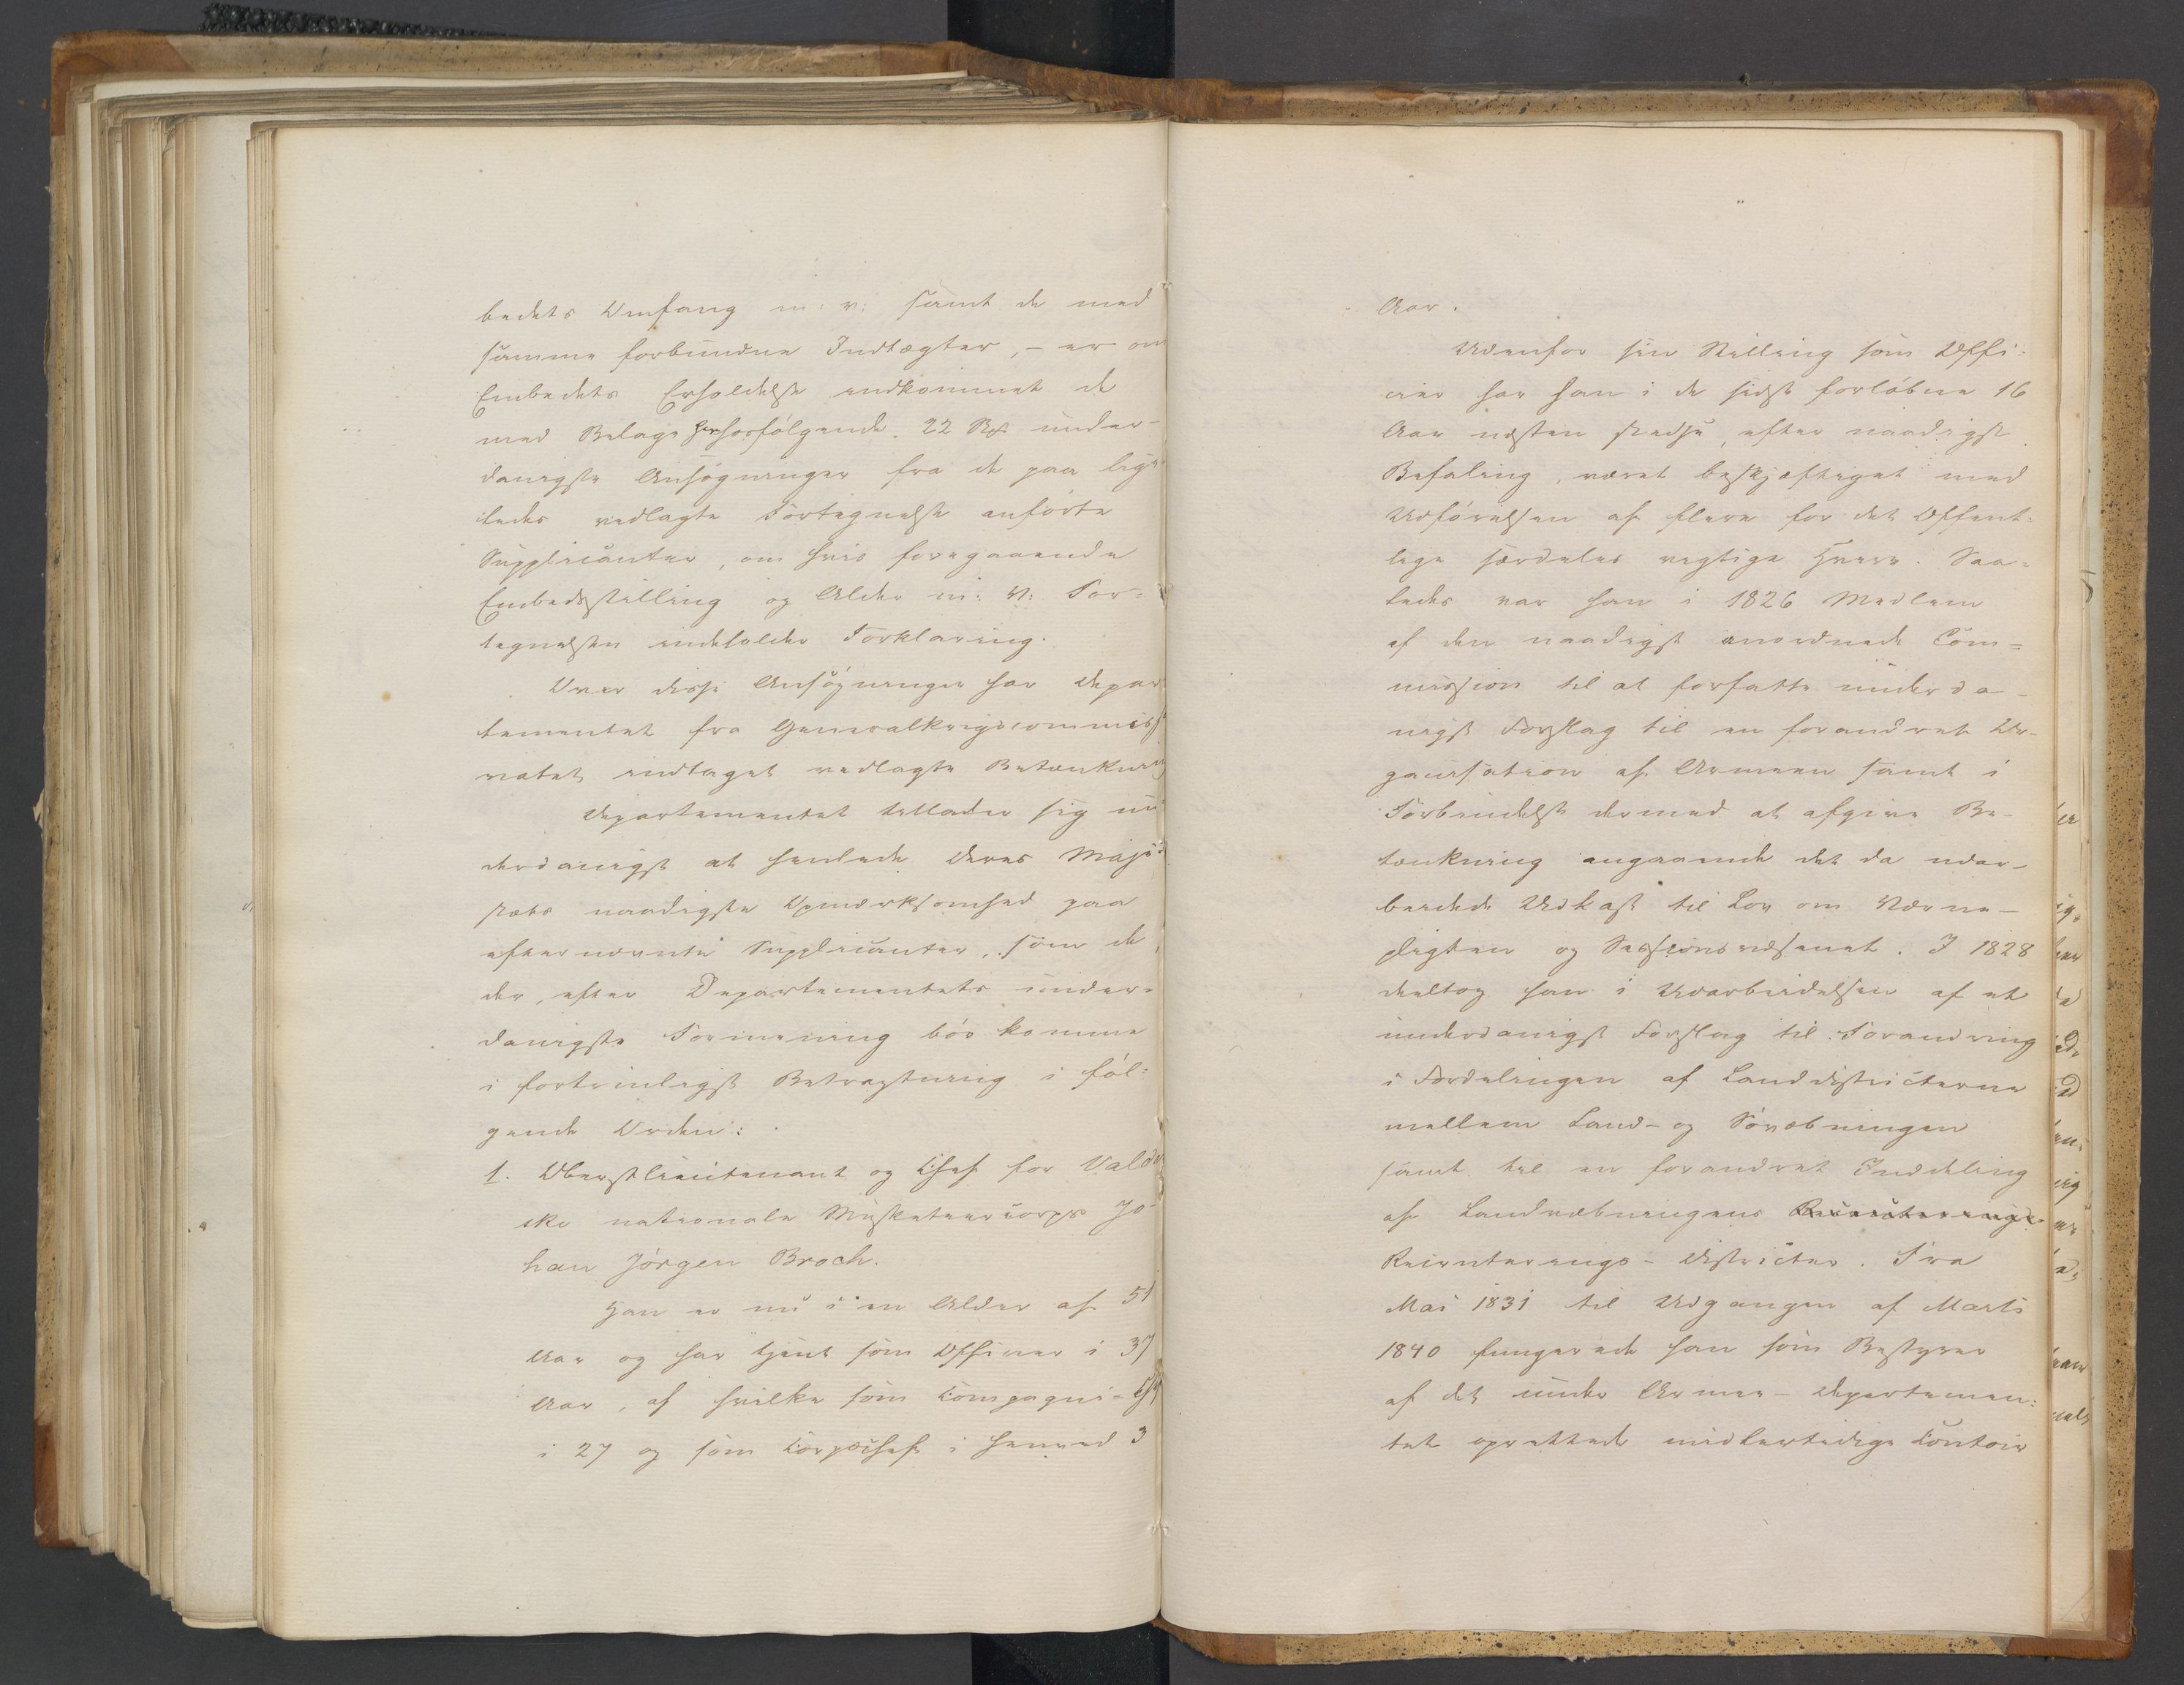 bedets Omfang m: v: samt de med
samme forbundne Indtægter, - er om
Embedets Erholdelse indkommet de
med Bilage herhosfølgende 22 Stk under-
danigste Ansøgninger fra de paa lige-
ledes vedlagte Fortegnelse anførte
Supplicanter, om hvis foregaaende
Embedsstilling og Alder m: v: For-
tegnelsen indeholder Forklaring.
Over disse Ansøgninger har Depar
tementet fra Generalkrigscommiss
riatet indtaget vedlagte Betænkning
Departementet tillader sig un
derdanigst at henlede Deres Maje
stæts naadigste Opmærksomhed paa
efternævnte Supplicanter, som de
der, efter Departementets under-
danigste Formening bør komme
i fortrinligst Betragtning i føl-
gende Orden:
1. Oberstlieutenant og Chef for Valder
ske nationale Musketeercorps Jo-
han Jørgen Broch.
Han er nu i en Alder af 51
Aar og har tjent som Officer i 37
Aar, af hvilke som Compagni-Ch
i 27 og som Corpschef i henved 3
Aar.
Udenfor sin Stilling som Offi-
cier har han i de sidst forløbne 16
Aar næsten stedse, efter naadigst
Befaling, været beskjæftiget med
Udførelsen af flere for det Offent-
lige særdeles vigtige Hverv. Saa-
ledes var han i 1826 Medlem
af den naadigst anordnede Com-
mission til at forfatte underda-
nigst Forslag til en forandret Or-
ganisation af Armeen samt i
Forbindelse dermed at afgive Be-
tænkning angaaende det da udar-
beidede Udkast til Lov om Værne-
pligten og Sessionsvæsenet. I 1828
deeltog han i Udarbeidelsen af et
underdanigst Forslag til Forandring
i Fordelingen af Landdistricterne
mellem Land- og Søvæbningen
samt til en forandret Inddeling
af Landvæbningens Recruterings-
Recruterings-Districter. Fra
Mai 1831 til Udgangen af Marts
1840 fungerede han som Bestyrer
af det under Armee-Departemen-
tet oprettede midlertidige Contoir